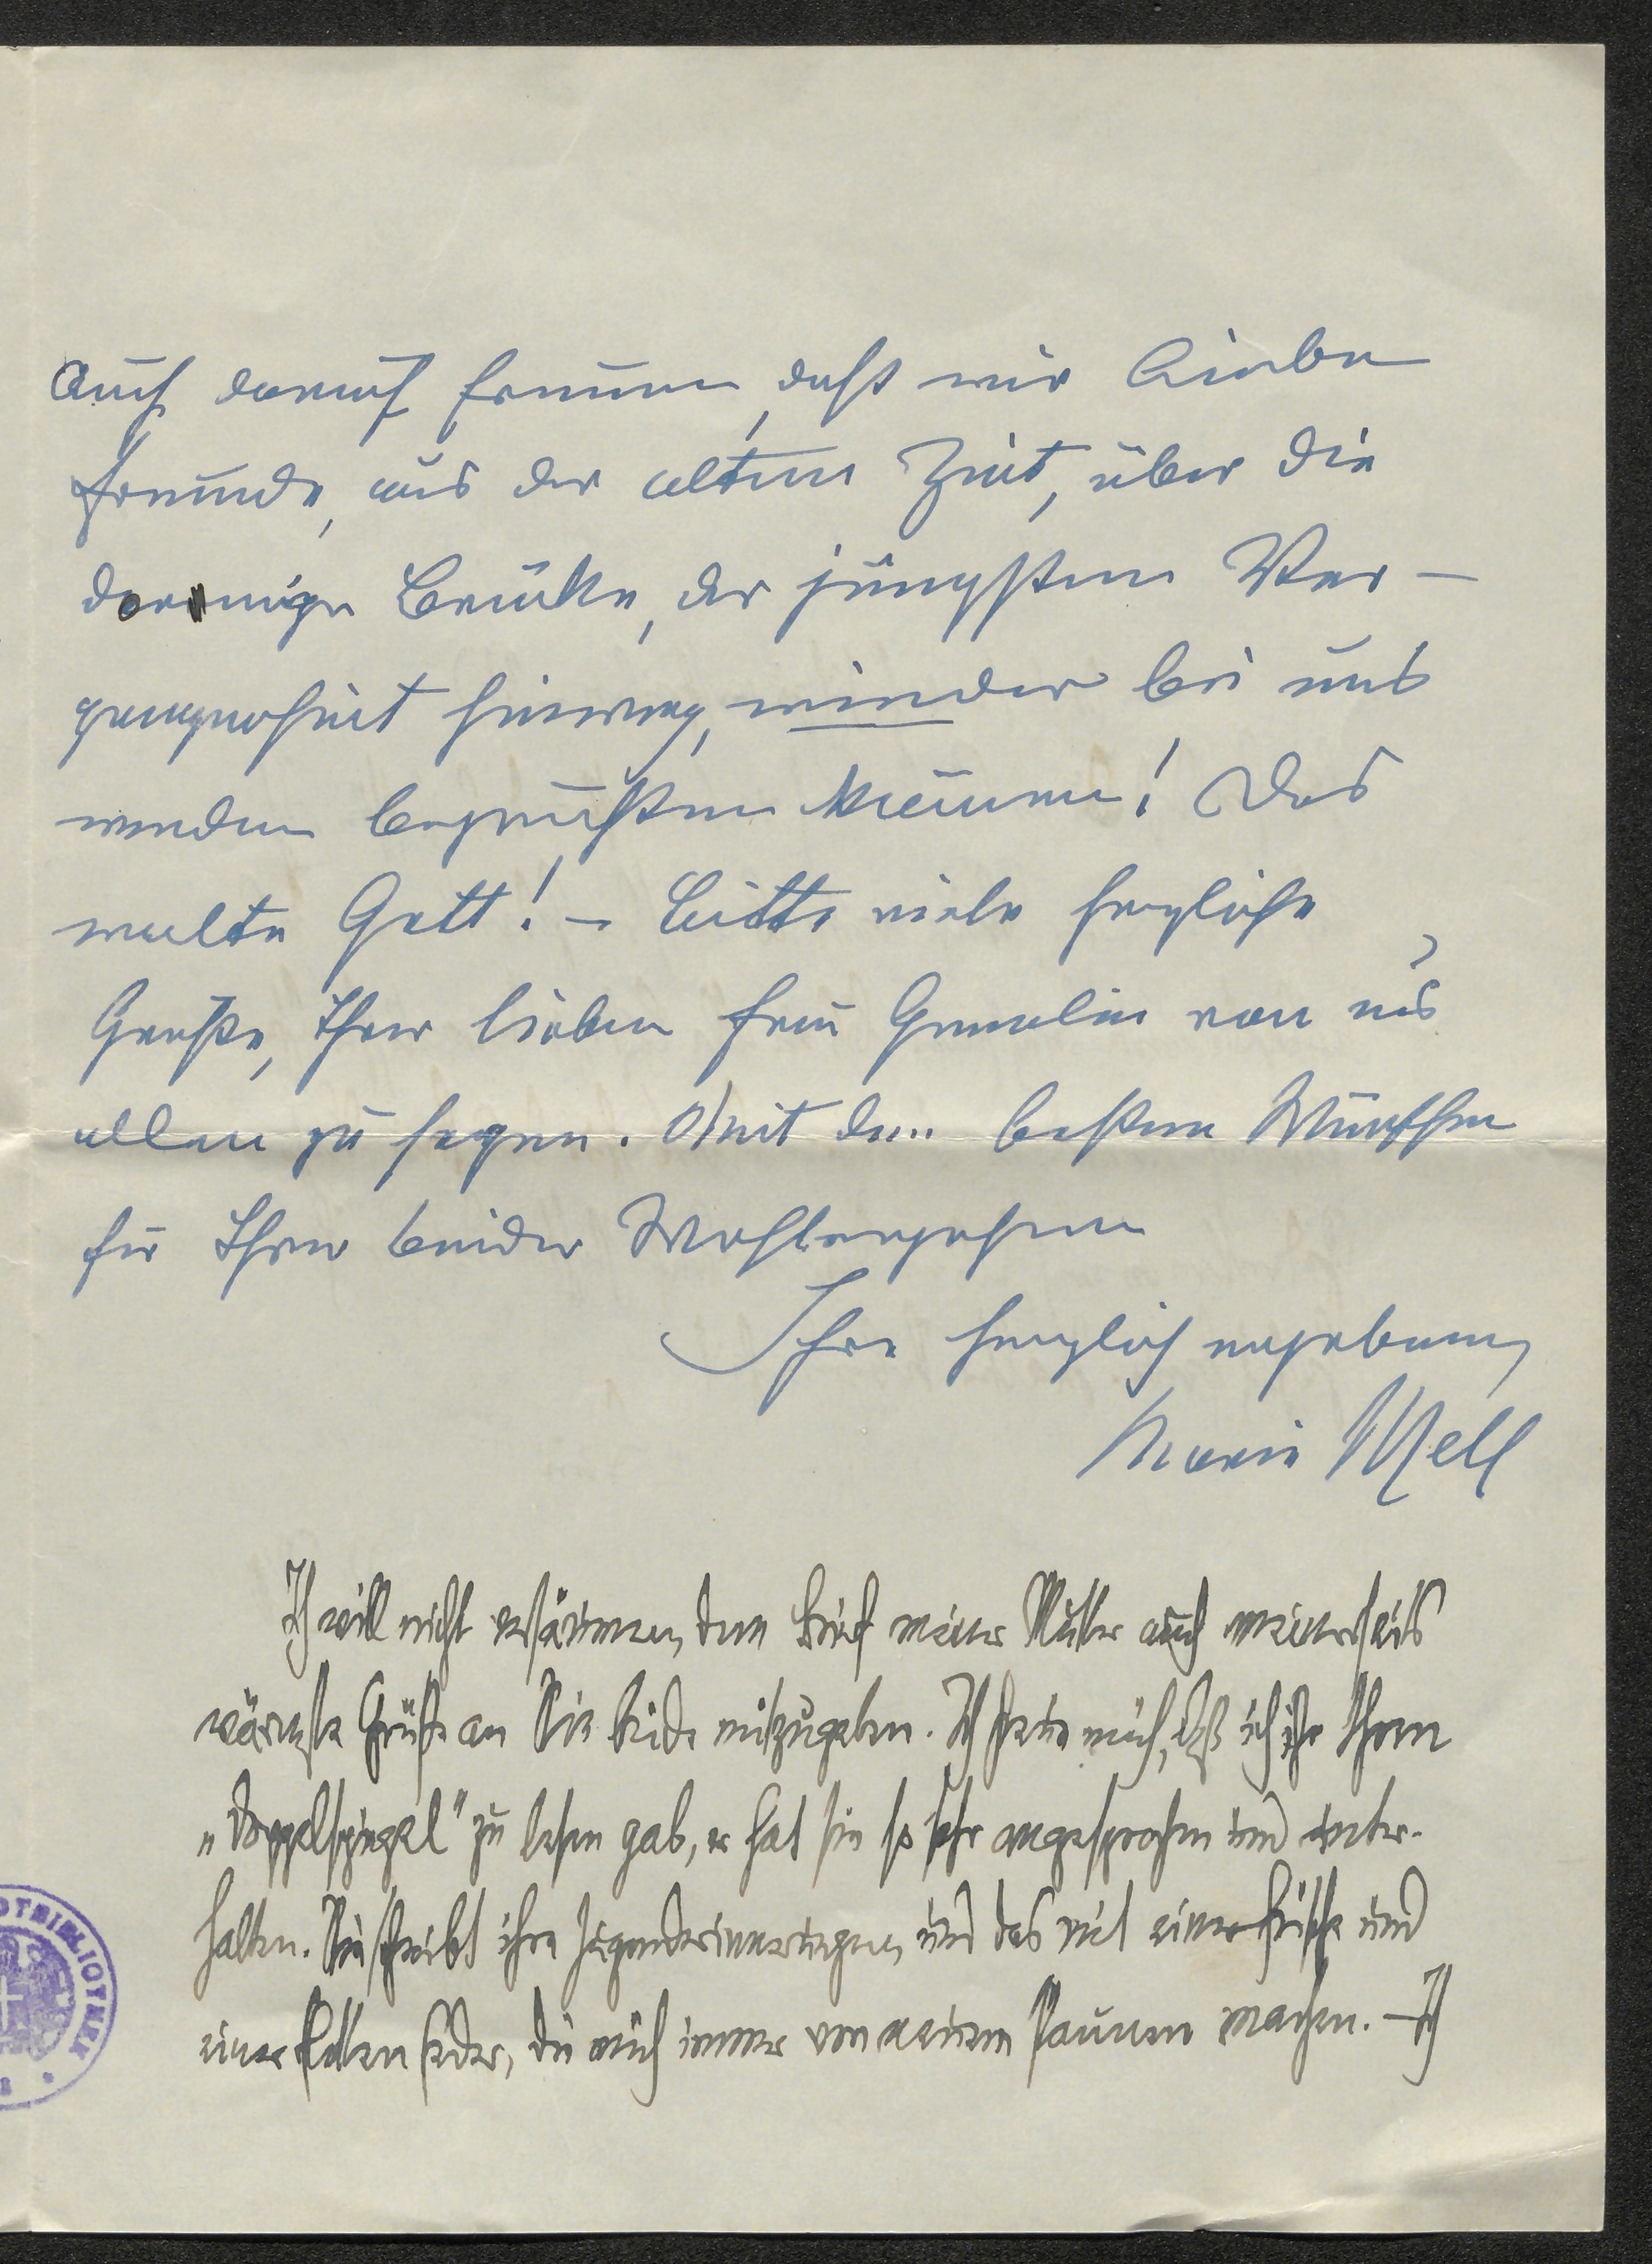 auch darauf freuen, daß wir Liebe
Freunde, aus der alten Zeit, über die
dornige Brücke, der jüngsten Ver-
gangenheit hinweg, wieder bei uns
werden begrüßen können! Das
walte Gott! – Bitte viele herzliche
Grüße, Ihrer lieben Frau Gemalin von uns
allen zu sagen. Mit den besten Wünschen
für Ihrer beider Wohlergehen
Ihre herzlich ergebene
Marie Mell
Ich will nicht versäumen, dem Brief meiner Mutter auch meinerseits
wärmste Grüße an Sie beide mitzugeben. Ich freue mich, daß ich ihr Ihren
„Doppelspiegel" zu lesen gab, er hat sie so sehr angesprochen und unter-
halten. Sie schreibt ihre Jugenderinnerungen, und das mit einer Frische und
einer hellen Feder, die mich immer von neuem staunen machen. – Ich